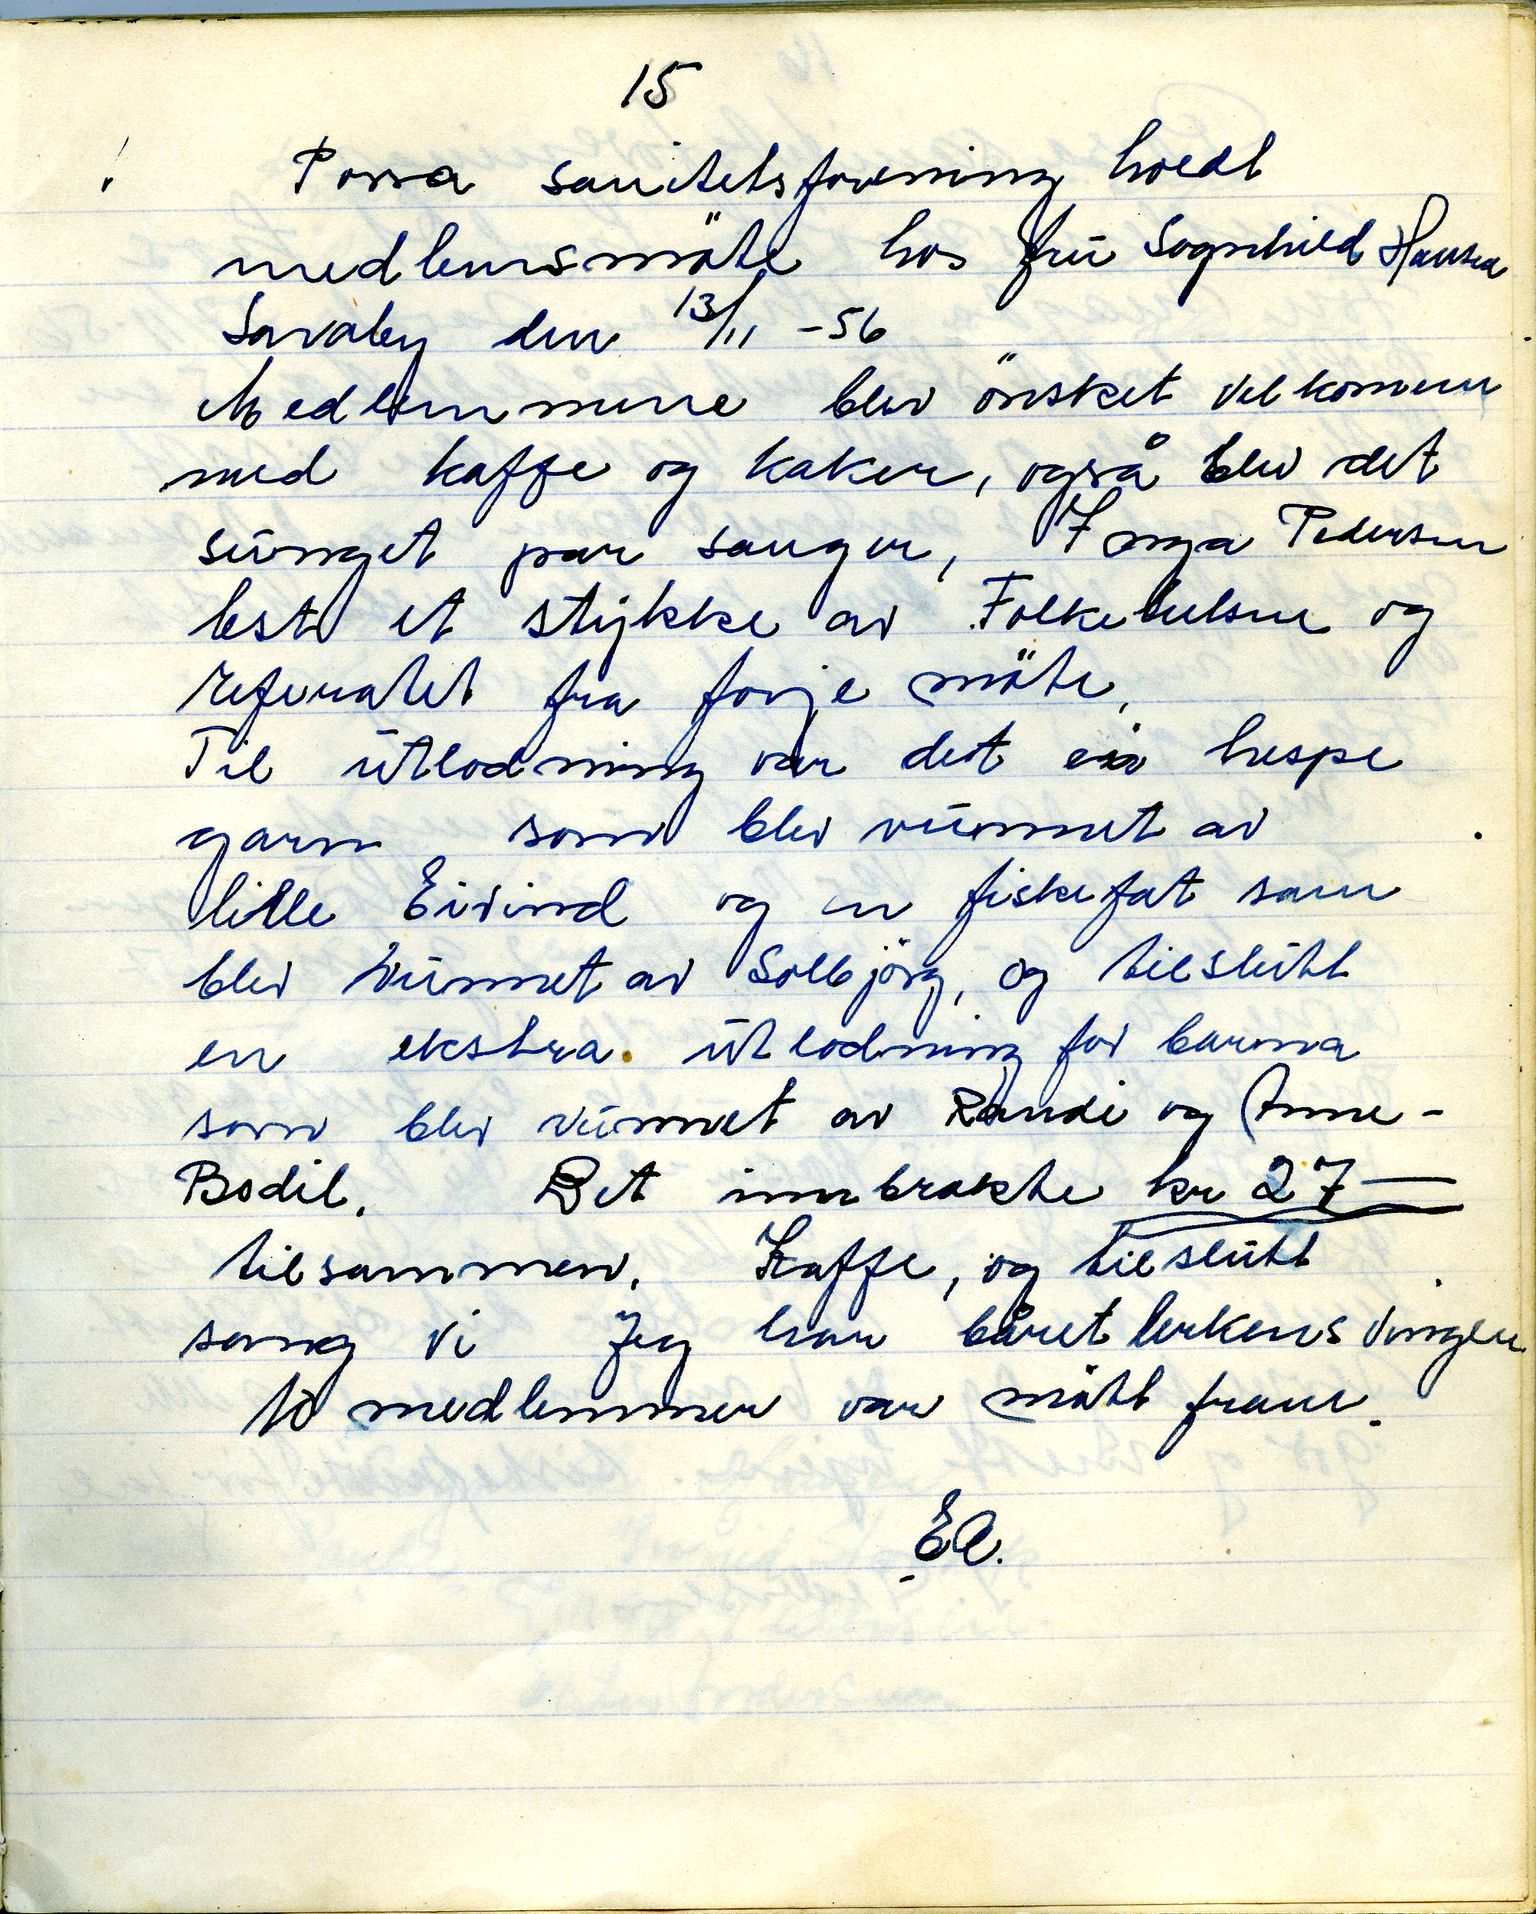 15
Porsa sanitetsforening holdt
medlemsmöte hos frü Sognhild Hansen
Sarvaby den 13/11 -56
Medlemmene blev önsket velkommen
med kaffe og kaker, også blev det
sünget par sanger, Inga Pedersen
leste et stykke av Folkehelsen og
referatet fra forje möte,
Til ütlodning var det en hespe
garn som blev vünnet av
lille Eivind og en fiskefat som
blev vünnet av Solbjörg, og tilslütt
en ekstra ütlodning for barna
som blev vünnet av Randi og Anne-
Bodil. Det innbrakte kr 27—
tilsammen. Kaffe, og tilslütt
sang vi Jeg har båret lerkens vinger
10 medlemmer var mött fram.
EA.